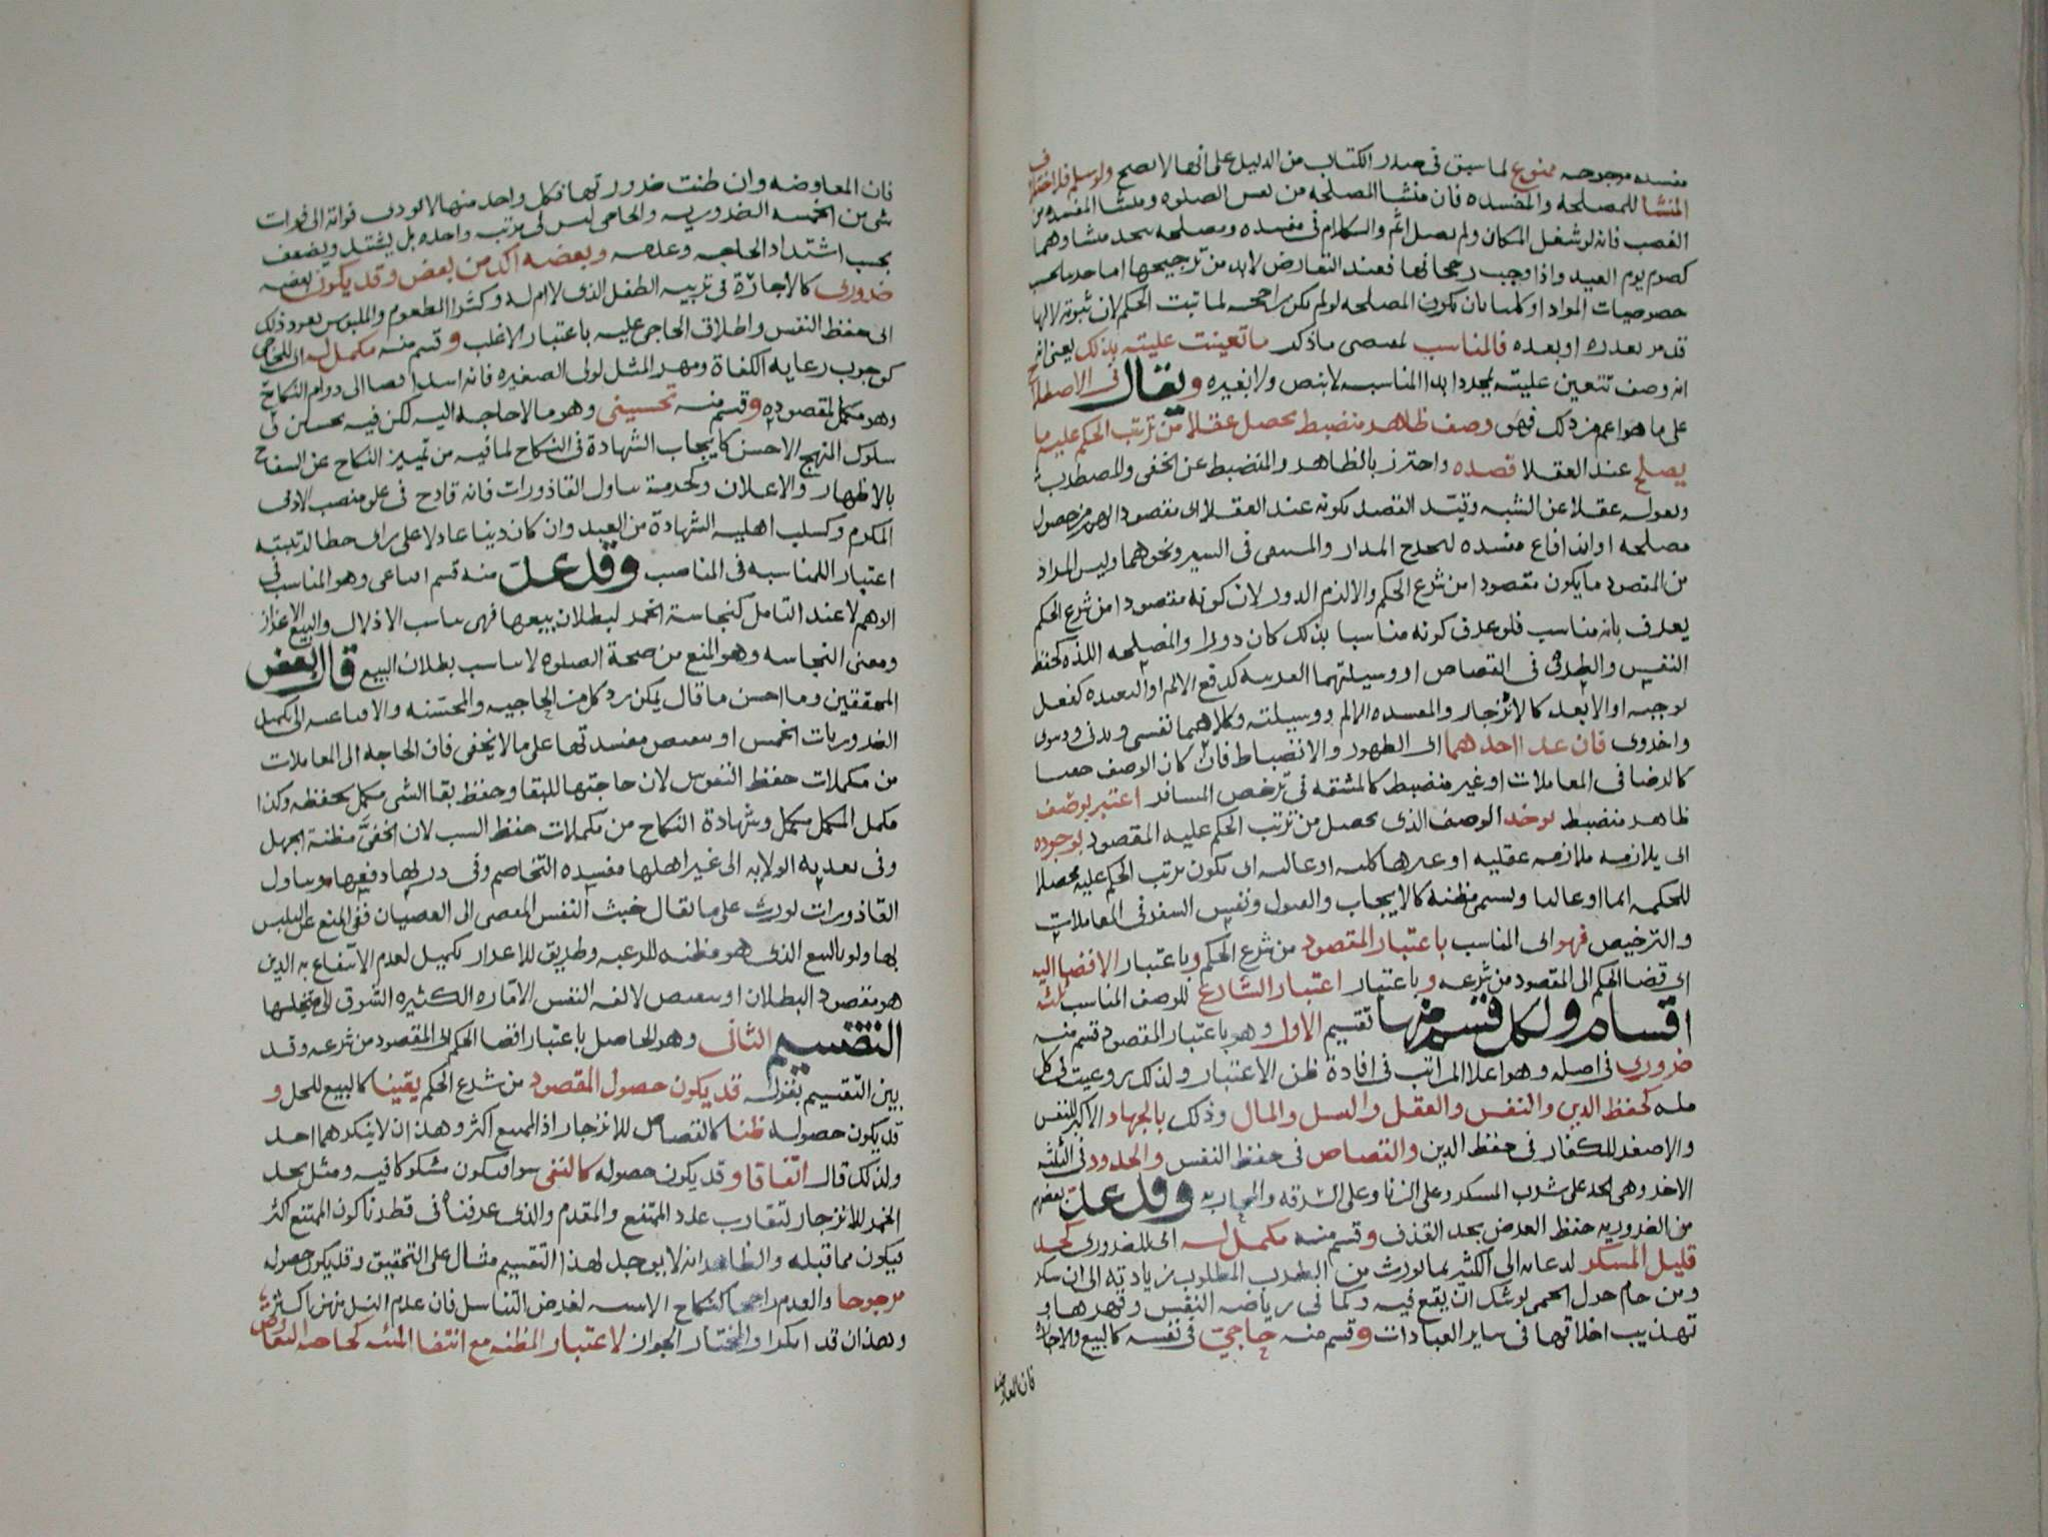 مفسده مرجوحه ممنوع لما سبق فى صدر الكتاب من الدليل على انها لا تصح ولو سلم فلاختلاف
المنشا للمصلحه والمفسده فان منشا المصلحه من نفس الصلوه ومنشا المفسده من
الغصب فانه لو شغل المكان ولم يصل اثم والكلام فى مفسده ومصلحه يتحد منشاوهما
كصوم يوم العيد واذا وجب رجحانها فعند التعارض لا بد من ترجيحها اما
خصوصيات المواد او كليا بان يكون المصلحه لو لم يكن راجحه لما ثبت الحكم لان ثبوته لا لها
قد مر بعدده او بعده فالمناسب لمعنى ما ذكر ما تعينت عليته بذلك يعنى
انه وصف تتعين عليته بمجرد ابدا المناسبه لا بنص ولا بغيره ويقال فى الاصطلاح
على ما هو اعم من ذلك فهو وصف ظاهر منضبط يحصل عقلا من ترتب الحكم عليه ما
يصلح عند العقلا قصده واحترز بالظاهر والمنضبط عن الخفى والمضطرب
وبقوله عقلا عن الشبه وقيد القصد بكونه عند العقلا اى مقصود الهم من حصول
مصلحه او اندفاع مفسده ليخرج المدار والمستبقى فى السير ونحوهما وليس المراد
من المقصود ما يكون مقصودا من شرع الحكم والا لزم الدور لان كونه مقصودا من شرع الحكم
يعرف بانه مناسب فلو عرف كونه مناسبا بذلك كان دورا والمصلحه اللذه كحفظ
النفس والطرف فى القصاص او وسيلتهما القريبه كدفع الالم او البعيده كفعل
يوجبه او الابعد كالانزجار والمفسده الالم ووسيلته وكلاهما نفسى وبدنى ودنيوى
واخروى فان عدم احدهما اى الظهور والانضباط فان كان الوصف خفيا
كالرضا فى المعاملات او غير منضبط كالمشقه فى ترخص المسافر اعتبر بوصف
ظاهر منضبط يوجد الوصف الذى يحصل من ترتب الحكم عليه المقصود بوجوده
اى يلازمه ملازمه عقليه او غيرها كليه او غالبه اى يكون ترتب الحكم عليه محصلا
للحكمه دايما او غالبا ويسمى مظنه كالايجاب والقبول ونفس السفر فى المعاملات
والترخيص فهو اى المناسب باعتبار المقصود من شرع الحكم وباعتبار الافضا اليه
اى افضا الحكم الى المقصود من شرعه وباعتبار اعتبار الشارع للوصف المناسب ثلثه
اقسام ولكل قسم منها تقسيم الاول وهو باعتبار المقصود قسم منه
ضرورى فى اصله وهو اعلا المراتب فى افادة ظن الاعتبار ولذلك روعيت فى كل
مله كحفظ الدين والنفس والعقل والنسل والمال وذلك بالجهاد الاكبر للنفس
والاصغر للكفار فى حفظ الدين والقصاص فى حفظ النفس والحدود فى الثلثه
الاخر وهى الحد على شرب المسكر وعلى الزنا وعلى السرقه والمحاربه وقد عد بعضهم
من الضروريه حفظ العرض بحد القذف وقسم منه مكمل له اى للضرورى كحد
قليل المسكر لدعايه الى الكثير بما يورث من الطرب المطلوب زيادته الى ان يسكر
ومن حام حول الحمى يوشك ان يقع فيه وكما فى رياضه النفس وقهرها و
تهذيب اخلاقها فى ساير العبادات وقسم منه حاجى فى نفسه كالبيع والاجاره
فان المعاوضه
فان المعاوضه وان ظنت ضروريتها فكل واحد منها لا يودى فواته الى فوات
شى من الخمسه الضروريه والحاجى ليس فى مرتبه واحده بل يشتد ويضعف
بحسب اشتداد الحاجه وعدمه وبعضه اكد من بعض وقد يكون بعضه
ضرورى كالاجارة فى تربيه الطفل الذى لا ام له وكشرا المطعوم والملبوس يعود ذلك
الى حفظ النفس واطلاق الحاجى عليه باعتبار الاغلب وقسم منه مكمل له اى للحاجى
كوجوب رعايه الكفاة ومهر المثل لولى الصغيره فانه اشد افضا الى دوام النكاح
وهو مكمل لمقصوده وقسم منه تحسينى وهو ما لا حاجه اليه لكن فيه تحسين فى
سلوك المنهج الاحسن كايجاب الشهادة فى النكاح لما فيه من تميز النكاح عن السفاح
بالاظهار والاعلان وكحرمة تناول القاذورات فانه قادح فى علو منصب الادمى
المكرم وكسلب اهليه الشهادة من العبد وان كان دينا عادلا على راى حطا لرتبته
اعتبار اللمناسبه فى المناصب وقد عد منه قسم اقناعى وهو المناسب فى
الوهم لا عند التامل كنجاسة الخمر لبطلان بيعها فهى يناسب الاذلال والبيع الاعزاز
ومعنى النجاسه وهو المنع من صحة الصلوه لا يناسب بطلان البيع قال بعض
المحققين وما احسن ما قال يمكن رد كل من الحاجيه والمحسنه والاقناعيه الى مكمل
الضروريات الخمس او بتنقيص مفسدتها على ما لا يخفى فان الحاجه الى المعاملات
من مكملات حفظ النفوس لان حاجتها للبقا وحفظ بقا الشى مكمل لحفظه وكذا
مكمل المكمل مكمل وشهادة النكاح من مكملات حفظ النسب لان الخفى مظنة الجهل
وفى تعديه الولايه الى غير اهلها مفسده التخاصم وفى دربها دفعها وتناول
القاذورات يورث على ما يقال خبث النفس المفضى الى العصيان ففى المنع عن التلبس
بها ولو بالبيع الذى هو مظنه للرغبه وطريق للاعزاز تكميل لعدم الانتفاع به الذى
هو مقصود البطلان او بتنقيص لالفه النفس الاماره الكثيره الشوق الى
التقسيم الثانى وهو الحاصل باعتبار افضا الحكم الى المقصود من شرعه وقد
بين التقسيم بقوله قد يكون حصول المقصود من شرع الحكم يقينا كالبيع للحل و
قد يكون حصوله ظنا كالقصاص للانزجار اذ الممتنع اكثر وهذان لا ينكرهما احد
ولذلك قال اتفاقا وقد يكون حصوله كالنفى سوا فيكون مشكوكا فيه ومثل بحد
الخمر للانزجار لتقارب عدد الممتنع والمقدم والذى عرفناه فى قطرنا كون الممتنع اكثر
فيكون مما قبله والظاهر انه لا يوجد لهذا التقسيم مثال على التحقيق وقد يكون حصوله
مرجوحا والعدم راجحا كنكاح الايسه لغرض التناسل فان عدم النسل منهن اكثر
وهذان قد انكرا والمختار الجواز لاعتبار المظنه مع انتفا المئنه كحاجه التعاوض